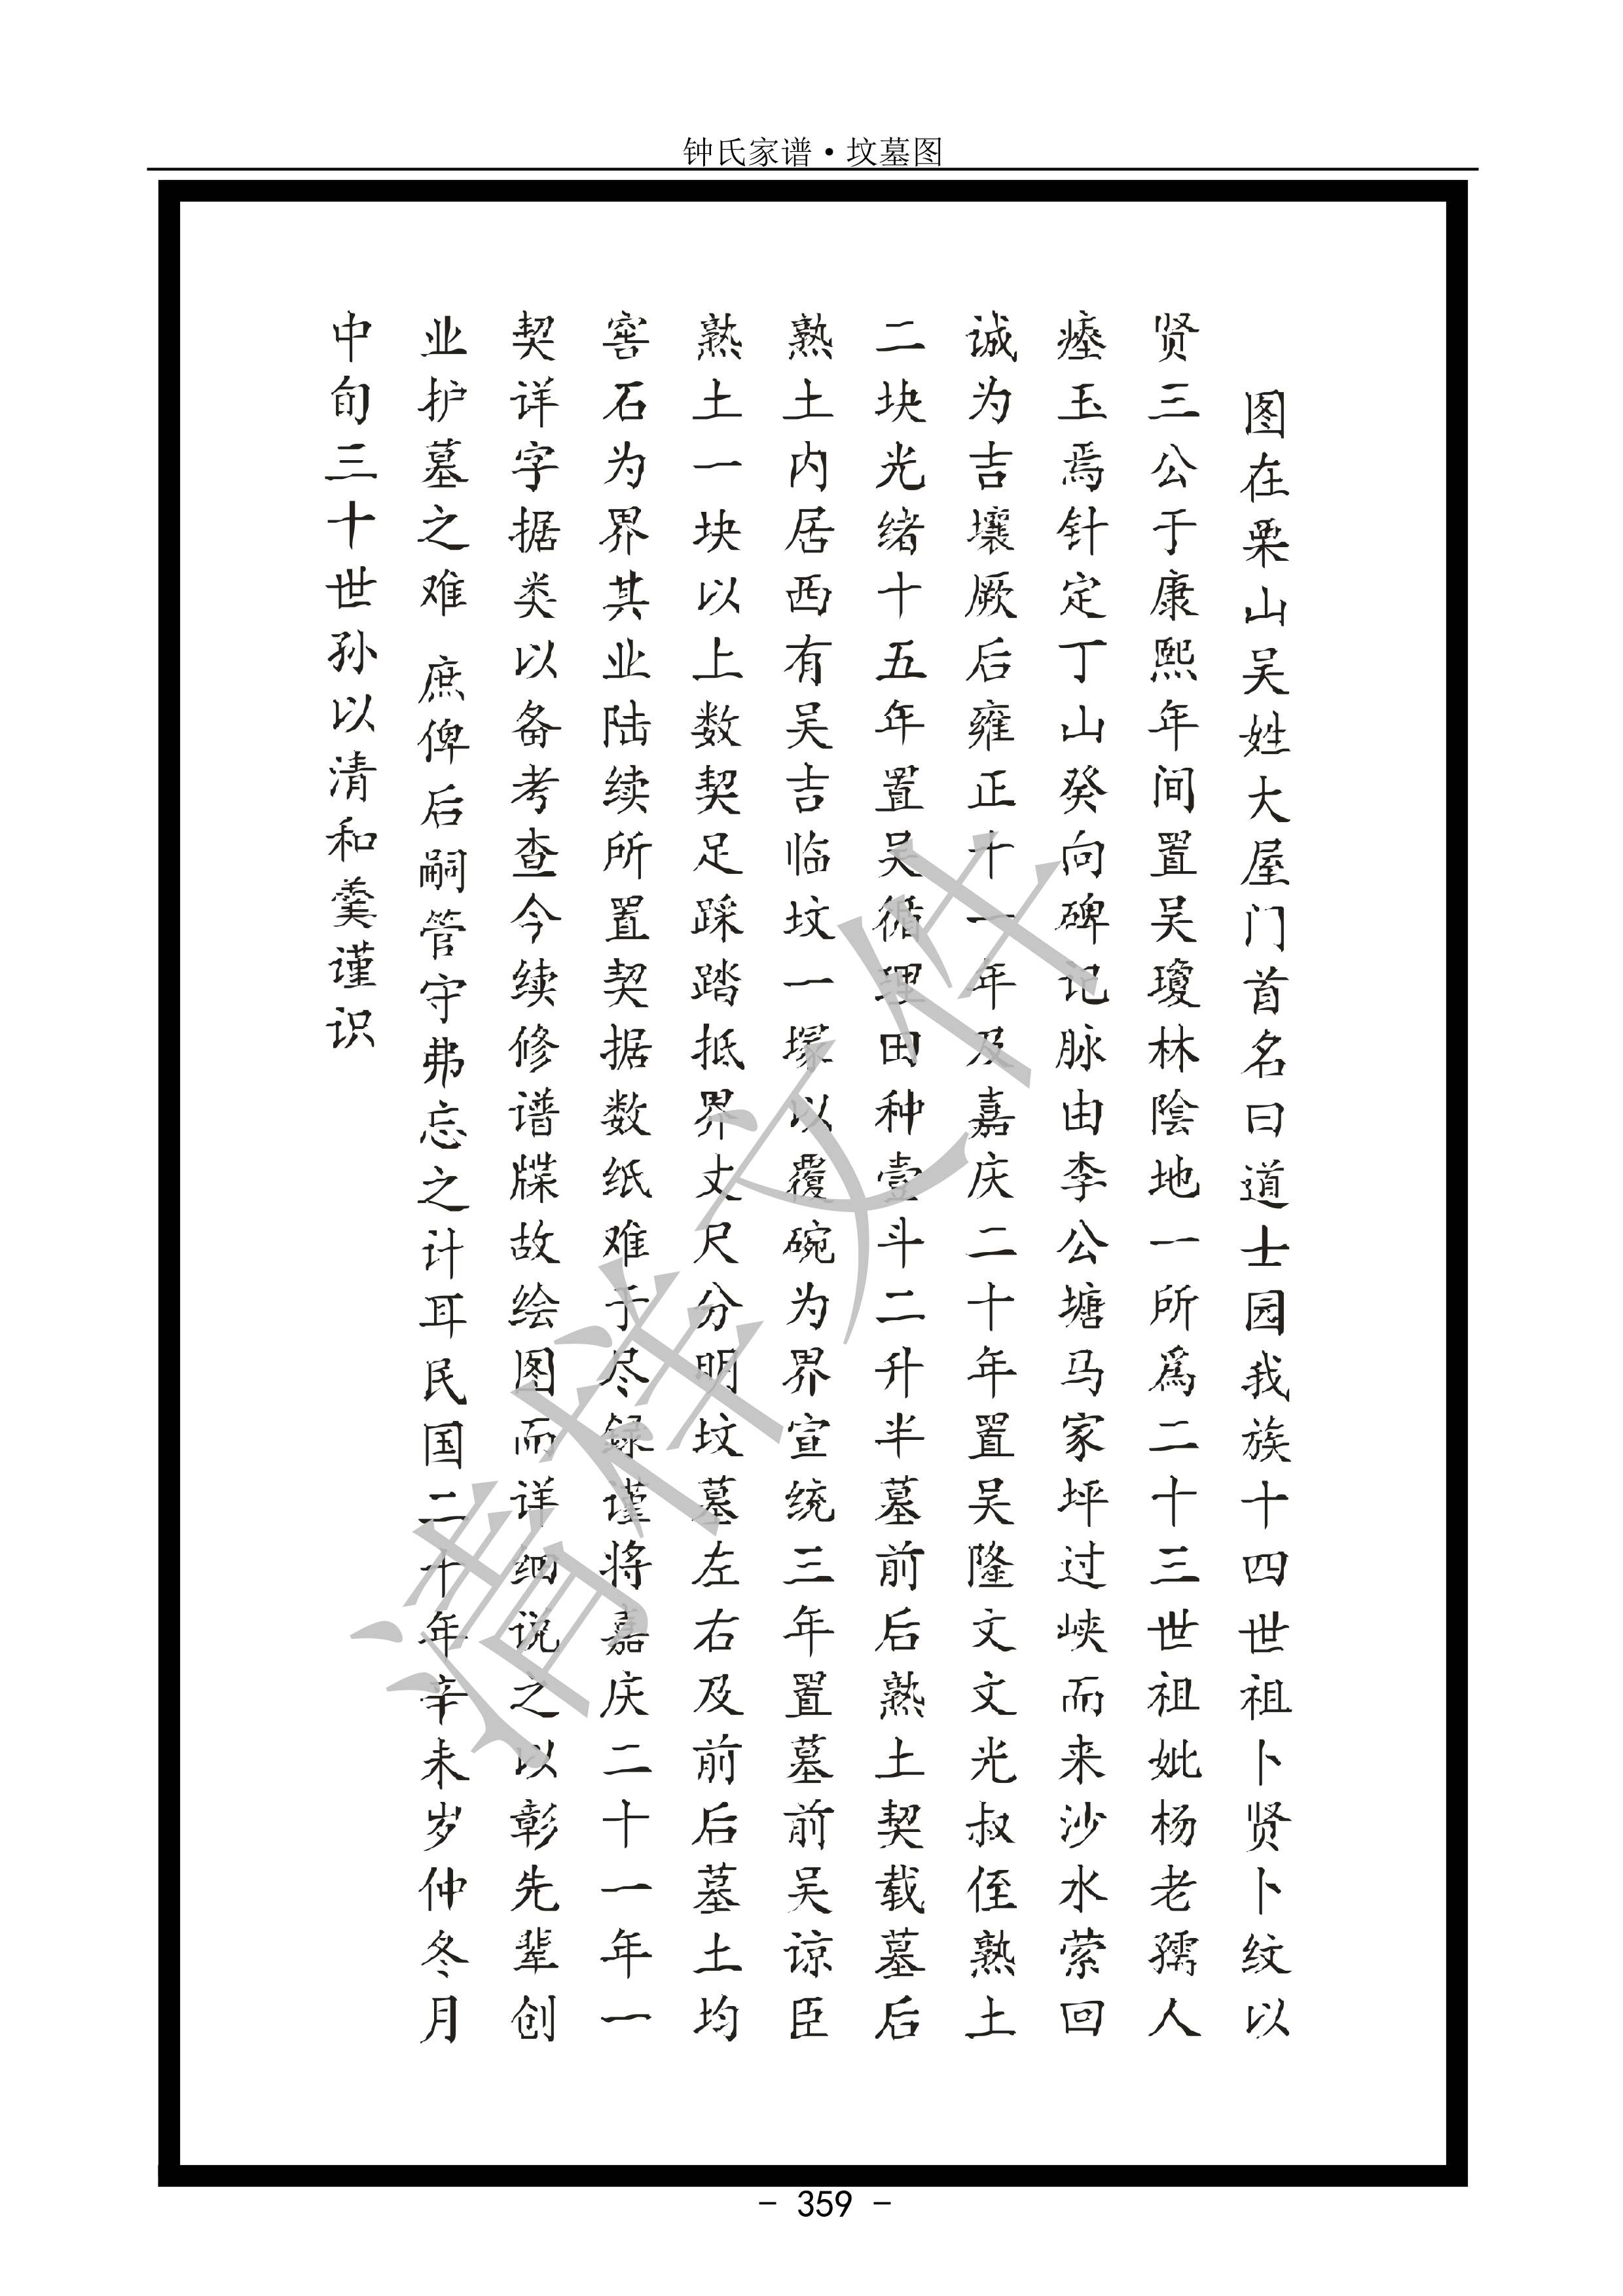 钟氏家谱·坟墓图
图在栗山吴姓大屋门首名曰道士园我族十四世祖卜贤卜纹以
贤三公于康熙年间置吴瓊林陰地一所爲二十三世祖妣杨老孺人
瘗玉焉针定丁山癸向碑记脉由李公塘马家坪过峡而来沙水萦回
诚为吉壤厥后雍正十一年及嘉庆二十年置吴隆文文光叔侄熟土
二块光绪十五年置吴循理田种壹斗二升半墓前后熟土契载墓后
熟土内居西有吴吉临坟一塚以覆碗为界宣统三年置墓前吴谅臣
熟土一块以上数契足踩踏抵界丈尺分明坟墓左右及前后墓土均
窖石为界其业陆续所置契据数纸难于尽録谨将嘉庆二十一年一
契详字据类以备考查今续修谱牒故绘图而详细说之以彰先辈创
业护墓之难 庶俾后嗣管守弗忘之计耳民国二十年辛未岁仲冬月
中旬三十世孙以清和羹谨识
清样文件
- 359 -